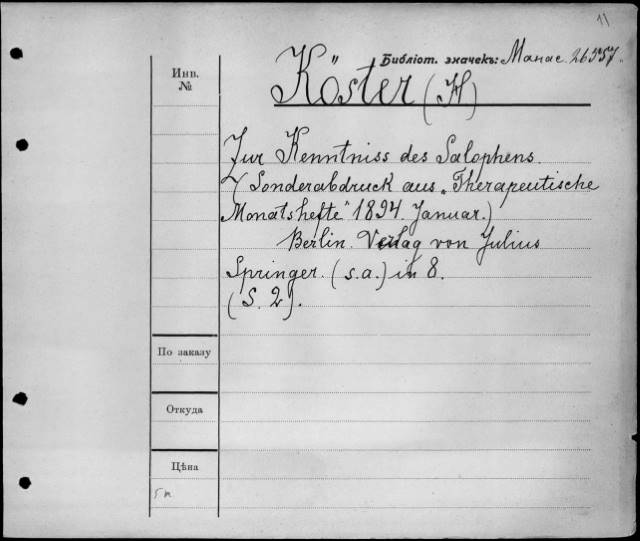 11
Библіот. значекъ: Манас. 26357.
Инв.
№
Köster (H)
Zur Kenntniss des Salophens.
(Sonderabdruck aus „Therapeutische
Monatshefte“ 1894. Januar.)
Berlin. Verlag von Julius
Springer. (s.a.) in 8.
(S. 2).
По заказу
Откуда
Цѣна